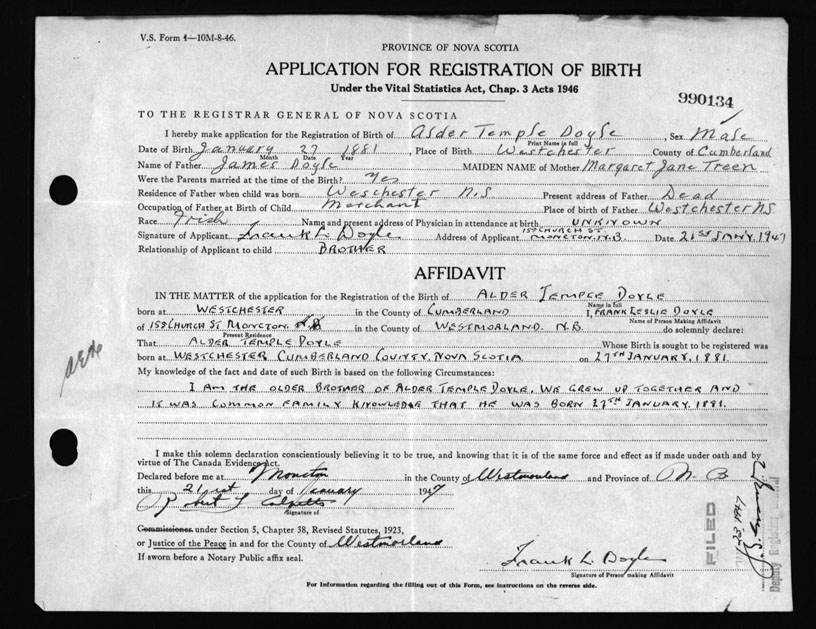 V.S. Form 1—10M-8-46.
PROVINCE OF NOVA SCOTIA
APPLICATION FOR REGISTRATION OF BIRTH
Under the Vital Statistics Act, Chap. 3 Acts 1946
990134
TO THE REGISTRAR GENERAL OF NOVA SCOTIA
I hereby make application for the Registration of Birth of Alder Temple Doyle, Sex Male
Print Name in full
Date of Birth January 27 1881, Place of Birth Westchester County of Cumberland
Month Date Year
Name of Father James Doyle MAIDEN NAME of Mother Margaret Jane Treen
Were the Parents married at the time of the Birth? Yes
Residence of Father when child was born Weschester N.S Present address of Father Dead
Occupation of Father at Birth of Child Merchant Place of birth of Father Westchester N.S
Race Irish Name and present address of Physician in attendance at birth UNKNOWN
Signature of Applicant Frank L. Doyle Address of Applicant 158 CHURCH ST. MONCTON, N.B. Date 21ST JANY. 1947
Relationship of Applicant to child BROTHER
AFFIDAVIT
IN THE MATTER of the application for the Registration of the Birth of ALDER TEMPLE DOYLE
Name in full
born at WESTCHESTER in the County of CUMBERLAND I, FRANK LESLIE DOYLE
Name of Person Making Affidavit
of 158 CHURCH ST MONCTON. N.B in the County of WESTMORLAND. N.B. do solemnly declare:
Present Residence
That ALDER TEMPLE DOYLE Whose Birth is sought to be registered was
born at WESTCHESTER CUMBERLAND COUNTY, NOVA SCOTIA on 27TH JANUARY, 1881.
My knowledge of the fact and date of such Birth is based on the following Circumstances:
I AM THE OLDER BROTHER OF ALDER TEMPLE DOYLE, WE GREW UP TOGETHER AND
IT WAS COMMON FAMILY KNOWLEDGE THAT HE WAS BORN 27TH JANUARY, 1881.
I make this solemn declaration conscientiously believing it to be true, and knowing that it is of the same force and effect as if made under oath and by
virtue of The Canada Evidence Act.
Declared before me at Moncton in the County of Westmorland and Province of N. B
this 21st day of January 1947
Signature of
Commissioner under Section 5, Chapter 38, Revised Statutes, 1923,
or Justice of the Peace in and for the County of Westmorland
If sworn before a Notary Public affix seal.
Frank L. Doyle
Signature of Person making Affidavit
For Information regarding the filling out of this Form, see instructions on the reverse side.
FILED
Deputy Registrar General